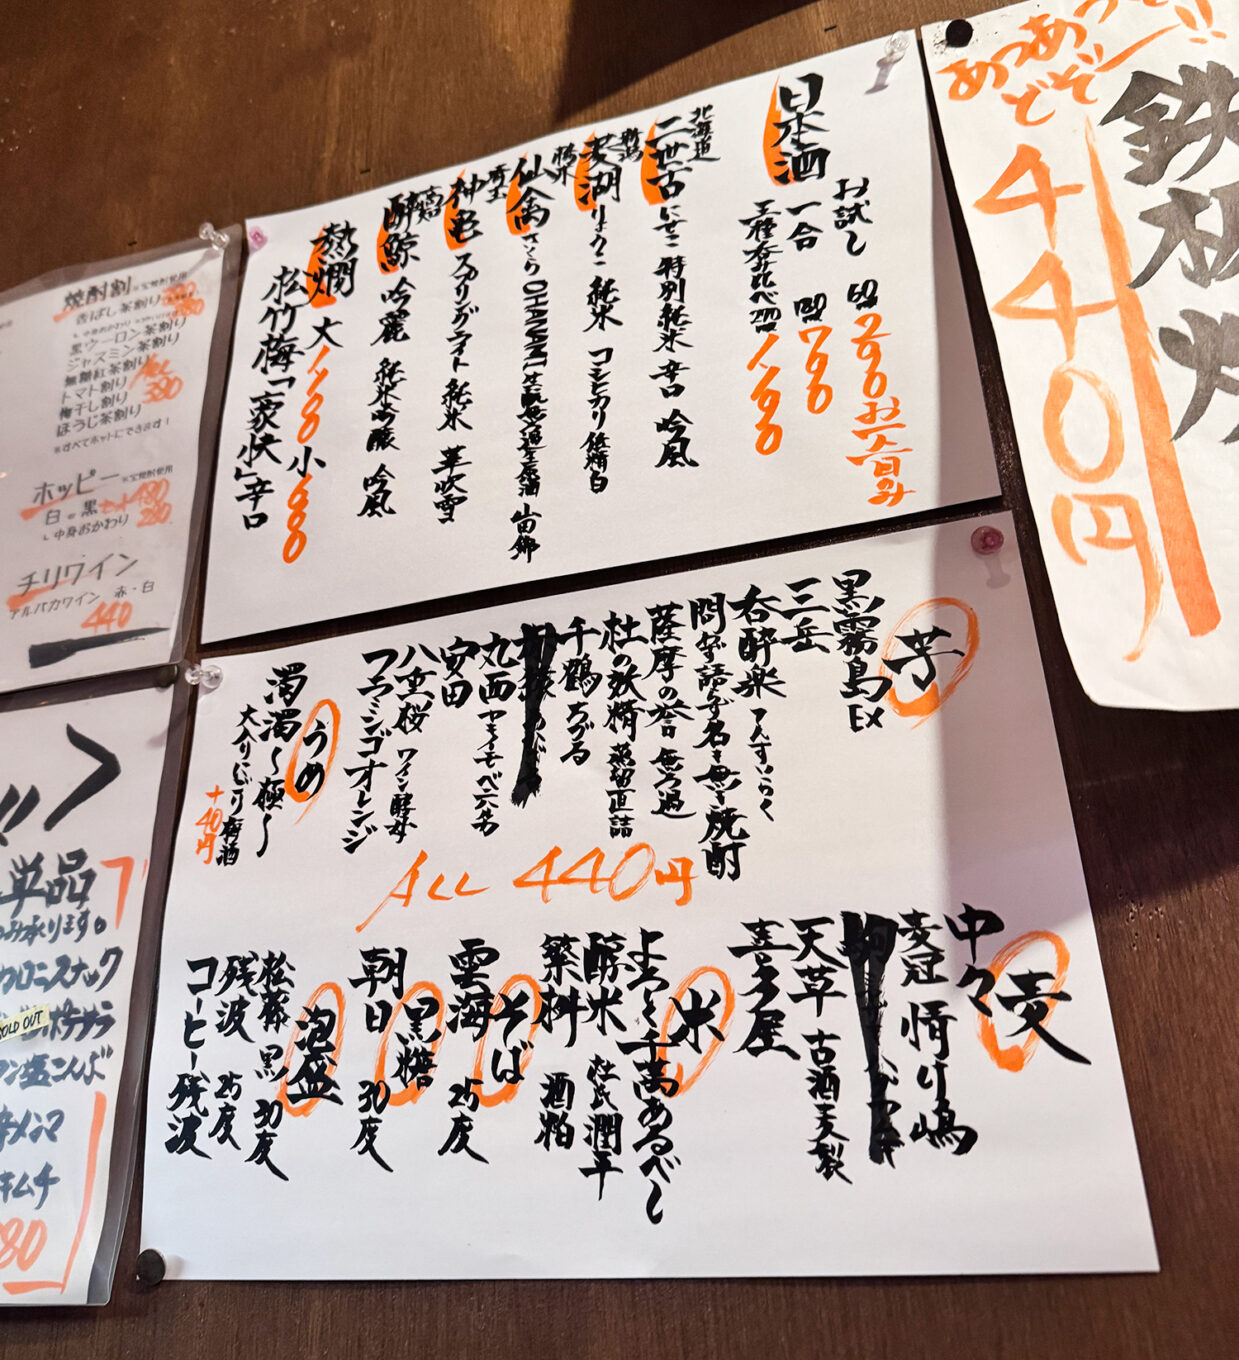 日本酒
お試し 60ml 290 お一人様1回のみ
一合 180ml 790
三種呑み比べ 270ml 1,190
北海道
二世古 にせこ 特別純米 辛口 吟風
新潟
菱湖 りょうこ 純米 コシヒカリ 低精白
栃木
仙禽 さくら OHANAMI 生酛無濾過生原酒 山田錦
埼玉
神亀 スプリングライト 純米 華吹雪
高知
酔鯨 吟麗 純米吟醸 吟風
熱燗 大 1,100 小 600
松竹梅「豪快」辛口
芋
黒霧島EX
三岳
呑酔楽 てんすいらく
問わず語らず名も無き焼酎
薩摩の誉 無濾過
杜の妖精 蒸留直詰
千鶴 ちづる
丸西
安田
八重桜 ワイン酵母
フラミンゴオレンジ
うめ
濁濁〜極〜
大人にごり梅酒
+40円
ALL 440円
麦
中々
麦冠 情け嶋
天草 古酒麦製
喜多屋
米
よろしく千萬あるべし
醇米 杜氏潤平
繁桝 酒粕
そば
雲海 25度
黒糖
朝日 30度
泡盛
松藤 黒 30度
残波 25度
コーヒー残波
あつあつ
でぞ
!!
鉄板
440円
焼酎割 ※宝焼酎使用
香ばし茶割り
黒ウーロン茶割り
ジャスミン茶割り
無糖紅茶割り
トマト割り
梅干し割り
ほうじ茶割り
ALL 380
※すべてホットにできます!
ホッピー ※宝焼酎使用
白 or 黒 セット480
中身おかわり 280
チリワイン
アルパカワイン 赤・白
440
単品
み承ります。
カロニスナック
SOLD OUT
ポテサラ
塩こんぶ
メンマ
キムチ
80